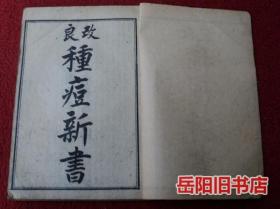 改良
種痘新書
岳阳旧书店